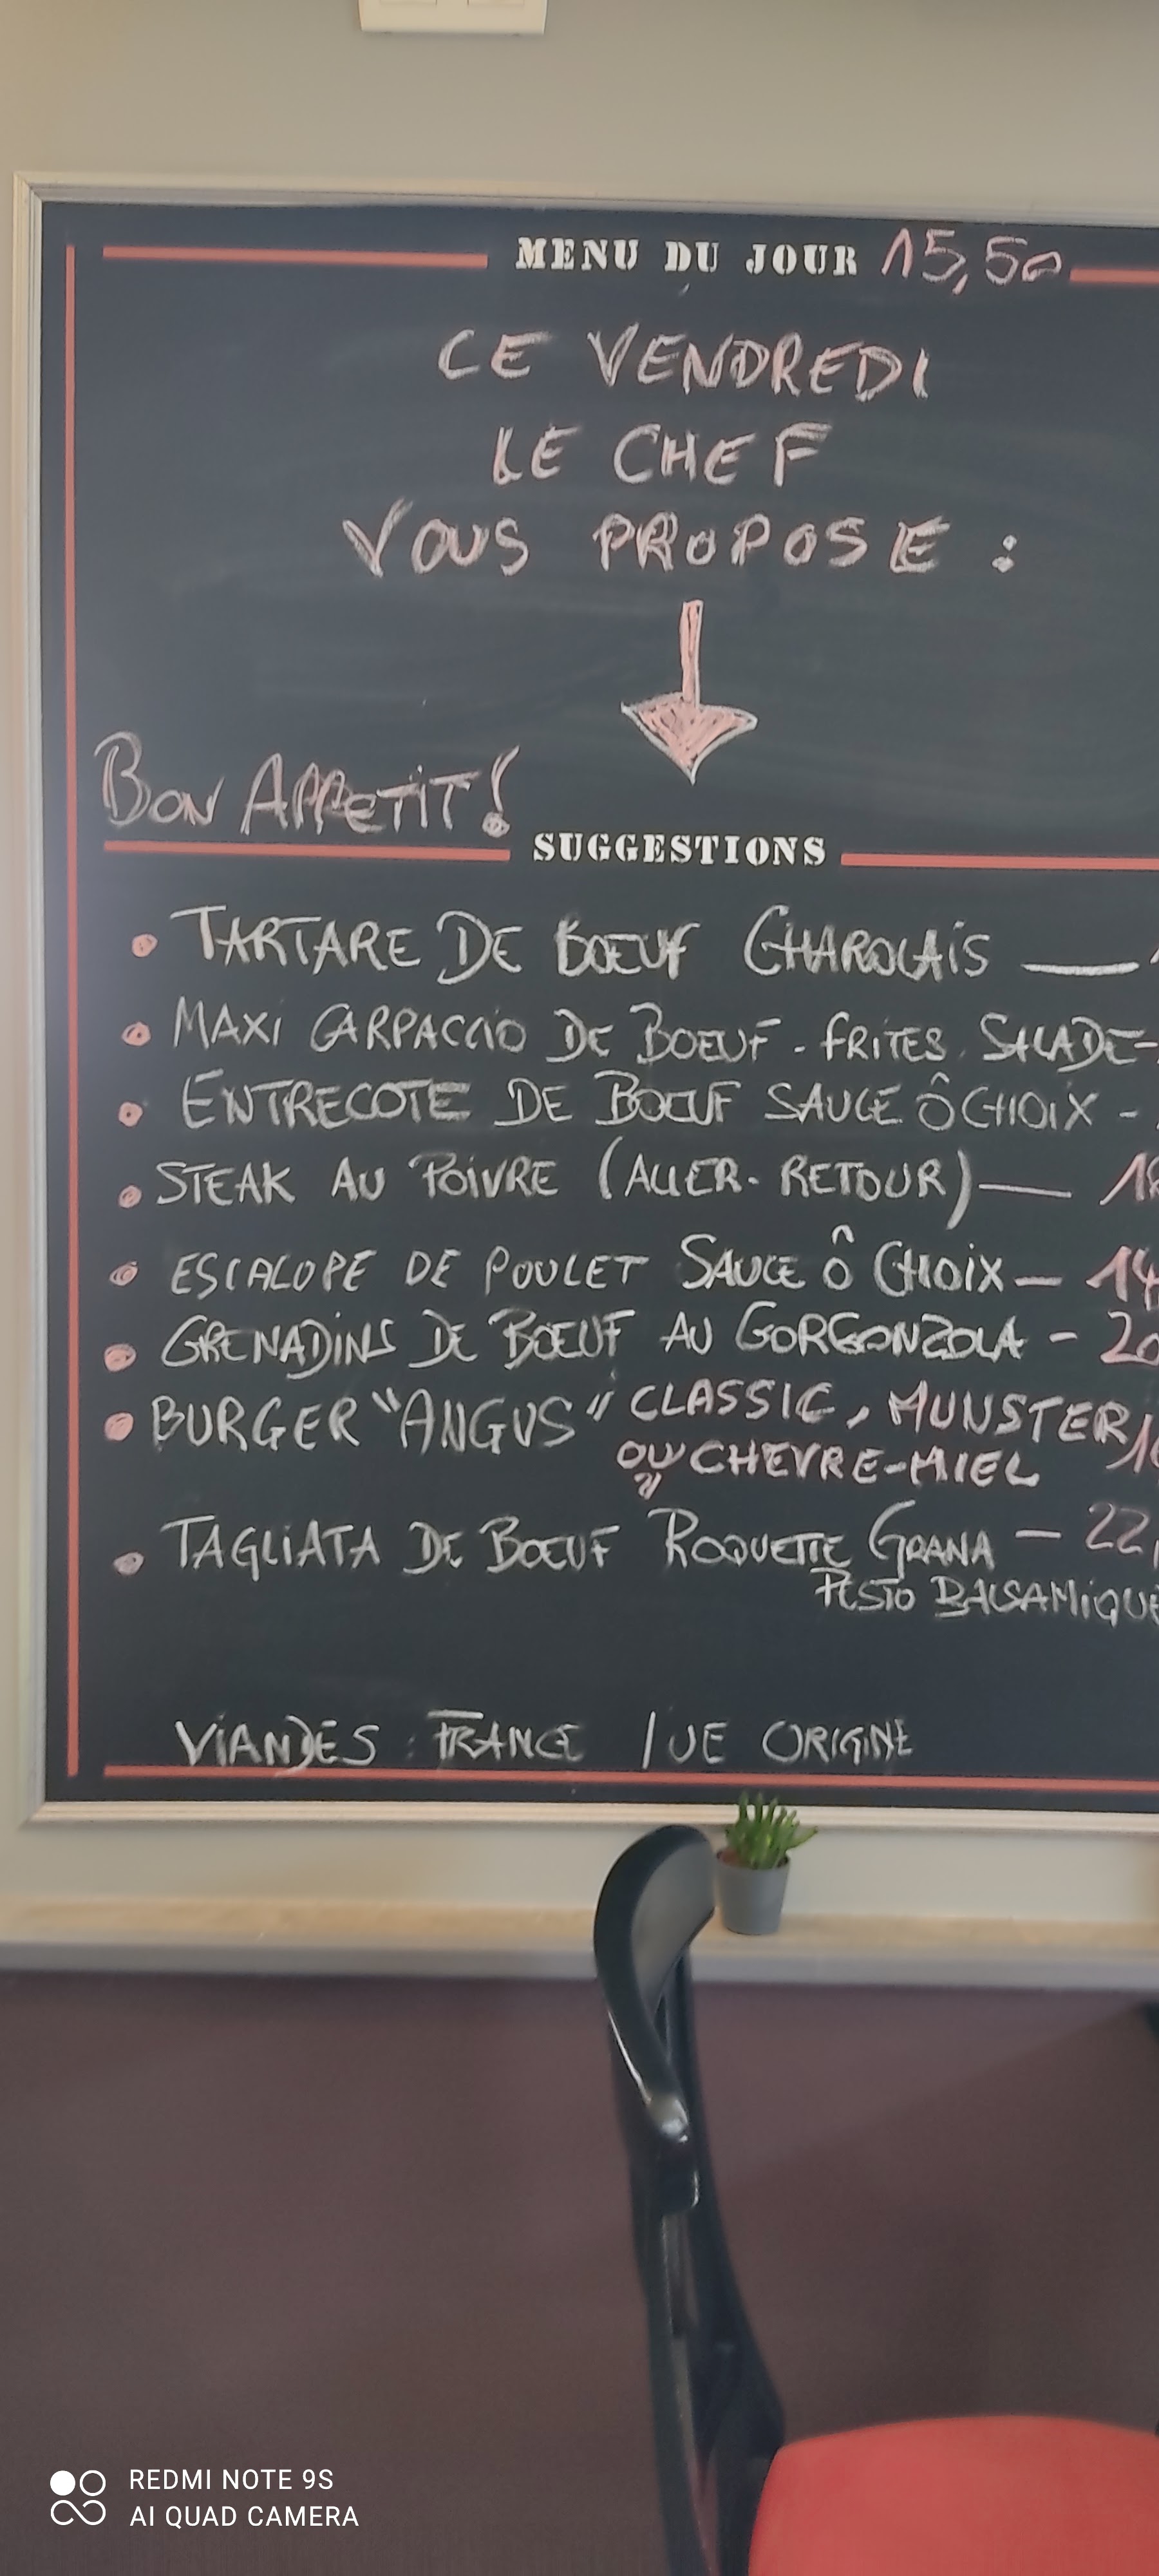 MENU DU JOUR 15,50
CE VENDREDI
LE CHEF
VOUS PROPOSE :
BON APPETIT !
SUGGESTIONS
• TARTARE DE BOEUF CHAROLAIS —
• MAXI CARPACCIO DE BOEUF - FRITES, SALADE -
• ENTRECOTE DE BOEUF SAUCE Ô CHOIX -
• STEAK AU POIVRE (ALLER-RETOUR) —
• ESCALOPE DE POULET SAUCE Ô CHOIX — 14,
• GRENADINS DE BOEUF AU GORGONZOLA - 20
• BURGER "ANGUS" CLASSIC, MUNSTER,
OU CHEVRE-MIEL
• TAGLIATA DE BOEUF ROQUETTE GRANA — 22,
PESTO BALSAMIQUE
VIANDES : FRANCE / UE ORIGINE
REDMI NOTE 9S
AI QUAD CAMERA